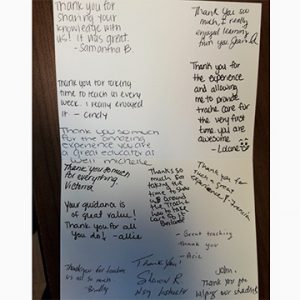 Thank you for
sharing your
knowledge with
us! It was great.
- Samantha B.
Thank you so
much, I really
enjoyed learning
from you
Thank you for taking
time to teach us every
week. I really enjoyed
it - Cindy
Thank you for
the experience
and allowing
me to provide
trache care for
the very first
time you are
awesome
Thank you so much for
the amazing
experience you are
a great educator as
well. Michelle
Thank you so much
for everything.
Victoria
Thanks so
much for
taking the
time to show
us around
the
Thank you for
such a great
experience!
Your guidance is
of great value!
Thank you for all
you do! - allie
- Great teaching
thank you
- Aric
Thank you!
Sharon R
Nsg Instructor
Thank you for
us all so much
John,
Thank you for